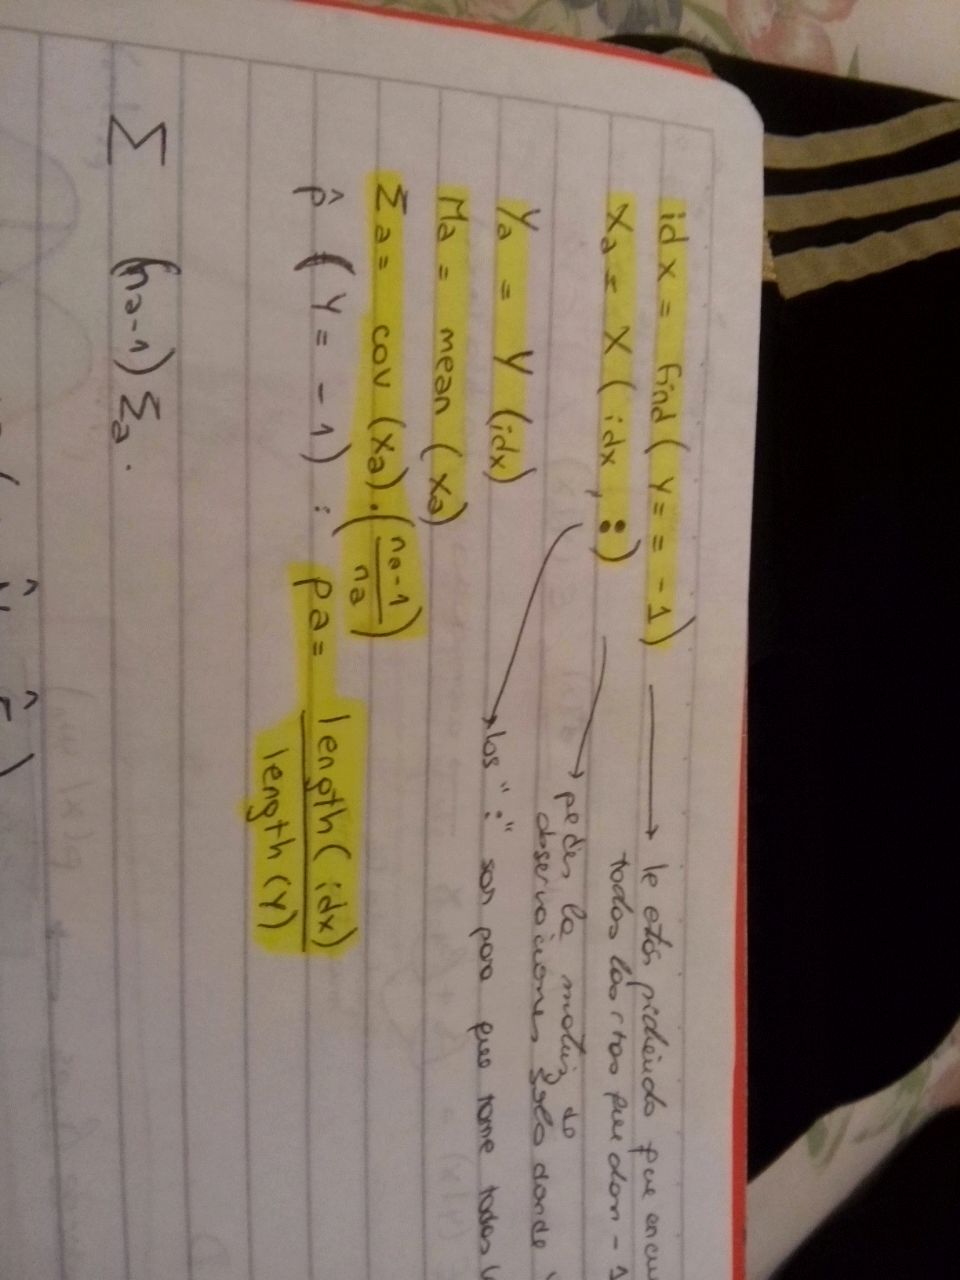 idx = find ( y = = -1 ) → le estás pidiendo que
todas las rtas que dan -1
Xa = X ( idx, : ) → pedís la matriz de
observaciones solo donde
→ los ":" son para que tome todas
Ya = Y (idx)
Ma = mean ( Xa )
Σa = cov (Xa) . ( na-1 / na )
p̂ ( Y = -1 ) : Pa = length ( idx ) / length (Y)
Σ (na-1) Σa .